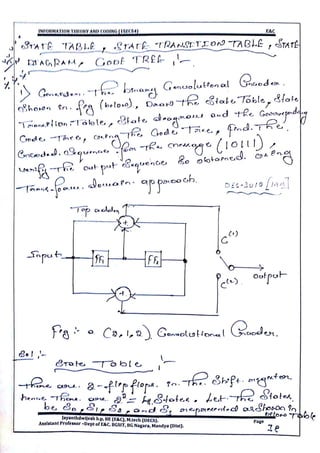 INFORMATION THEORY AND CODING (15EC54) E&C
STATE TABLE, STATE TRANSITION TABLE, STATE
DIAGRAM, CODE TREE :-
1) Consider The binary Convolutional Encoder
shown in fig (below), Draw The State Table, State
Transition Table, State diagram and the Corresponding
Code Tree, using The Code Tree, find The
Encoded Sequence for The message (10111),
verify The output Sequence so obtained using
Transform domain approach.
Top adder
C(1)
Input
FF1
FF2
output
C(2)
Fig :- a (2,1,2) Convolutional Encoder.
Sol :-
State Table :-
There are 2-flip flops in The Shift register
hence There are 2² = 4 States. Let The States
be S0, S1, S2, and S3 represented as shown in
below Table
Assistant Professor -Dept of E&C, BGSIT, BG Nagara, Mandya (Dist).
Page